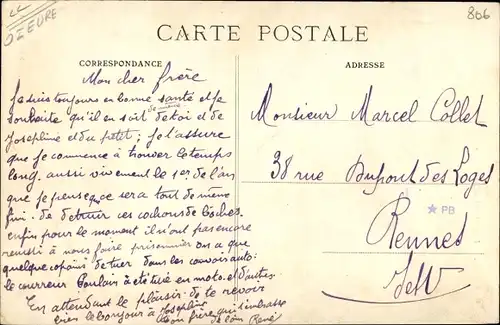 LL
OZEURE
806
CARTE POSTALE
CORRESPONDANCE
ADRESSE
Mon cher frère
Je suis toujours en bonne santé et je
souhaite qu'il en soit de même de toi et de
Joséphine et du petit; je t'assure
que je commence à trouver le temps
long. aussi vivement le 1er de l'an
que je pense que ce sera tout de même
fini. de détruir ces cochons de boches
enfin pour le moment il n'ont pas encore
reussi à nous faire prisonnier on a que
quelque copains de tuer dans les convois auto:
le courreur Coulon à été tué en moto. et d'autres
En attendant le plaisir de te revoir
bien le bonjour à Joséphine
ton frère qui t'embrasse
René
Monsieur Marcel Collet
38 rue Dupont des Loges
Rennes
I et V
PB